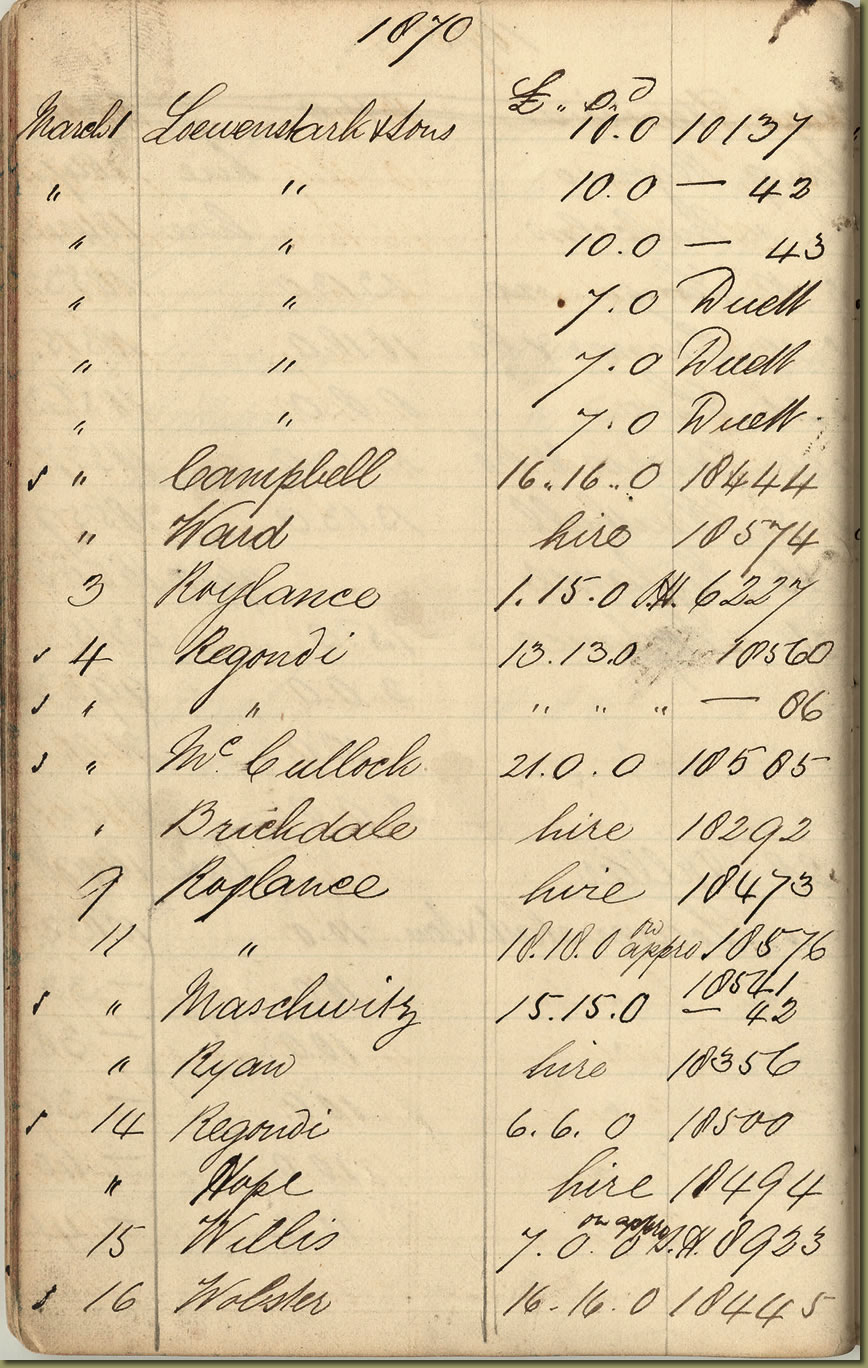 1870
£ „ s. d
March 1 Loewenstark & Sons 10.0 10137
" " 10.0 — 42
" " 10.0 — 43
" " 7.0 Duett
" " 7.0 Duett
" " 7.0 Duett
s " Campbell 16.16.0 18444
" Ward hire 18574
3 Roylance 1.15.0 S.H. 6227
s 4 Regondi 13.13.0 18560
s " " " " " — 86
s " McCulloch 21.0.0 18585
" Brickdale hire 18292
9 Roylance hire 18473
11 " 18.18.0 on appro 18576
s " Maschwitz 15.15.0 18541
— 42
" Ryan hire 18356
s 14 Regondi 6.6.0 18500
" Hope hire 18494
15 Willis 7.0.0 on appro S.H. 8923
s 16 Wolster 16.16.0 18445